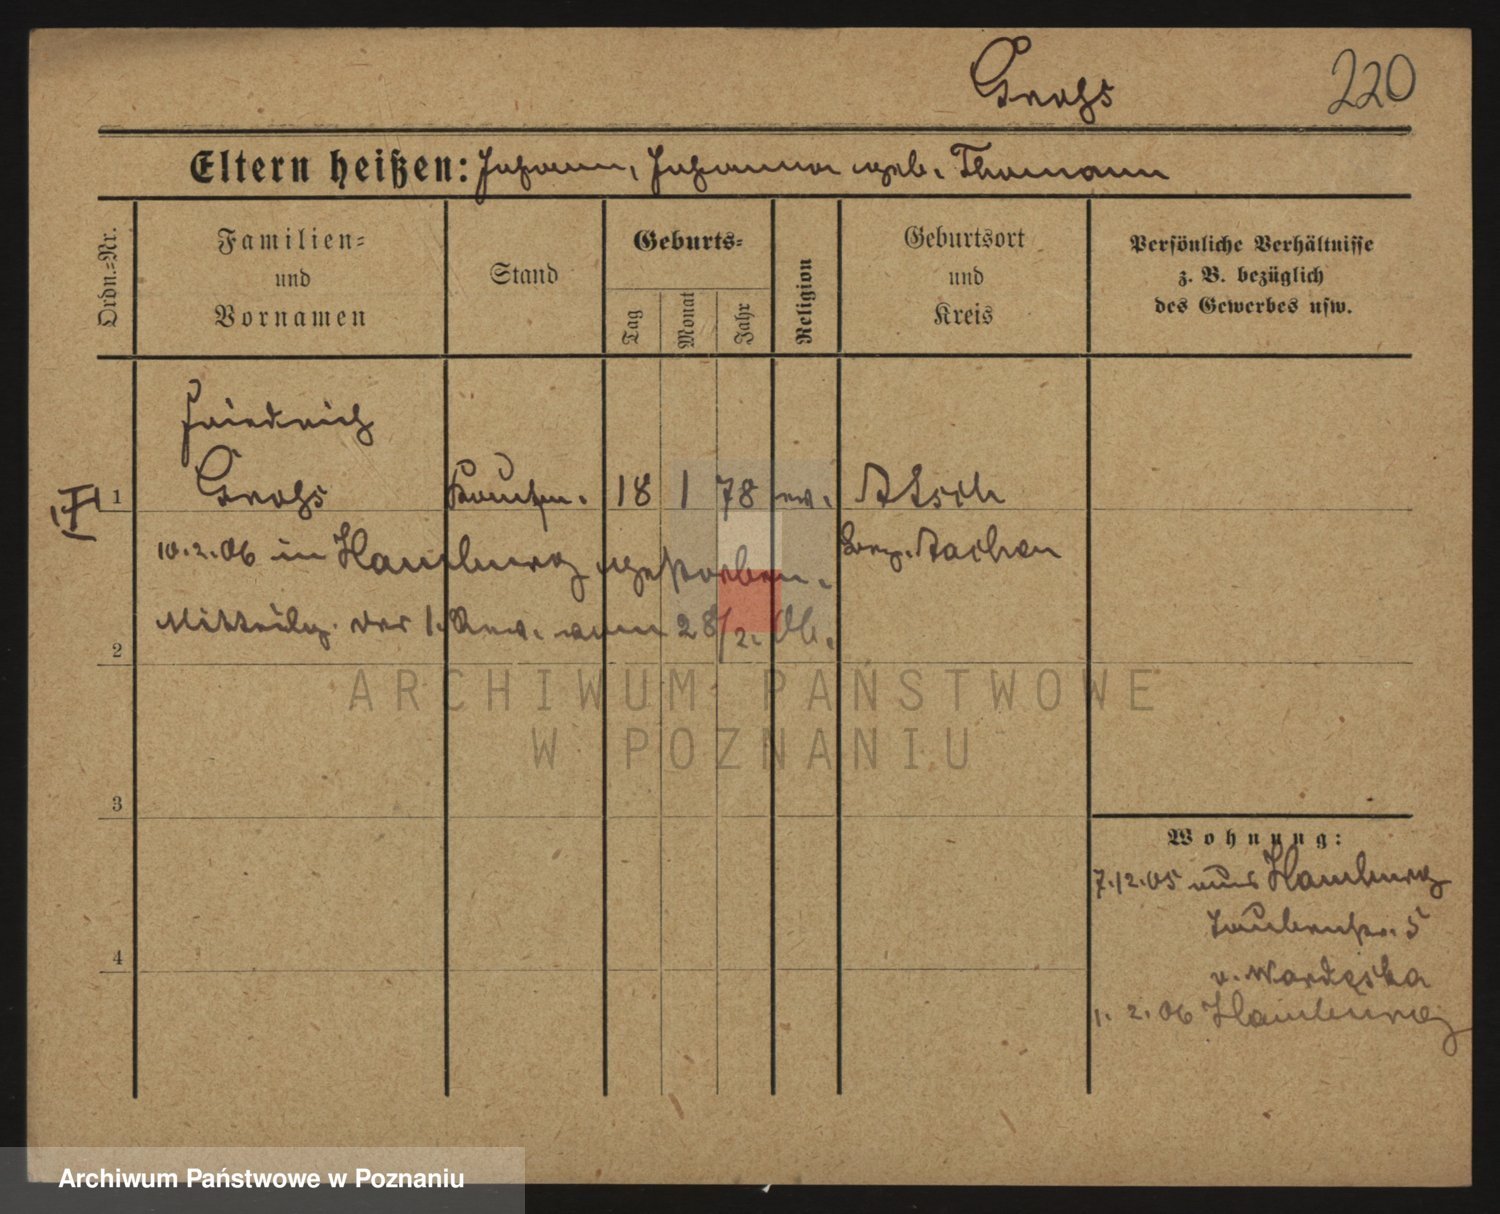 Grohs
220
Eltern heißen: Johann, Johanna geb. Thomann
Ordn.=Nr.
Familien=
und
Vornamen
Stand
Geburts=
Tag
Monat
Jahr
Religion
Geburtsort
und
Kreis
Persönliche Verhältnisse
z. B. bezüglich
des Gewerbes usw.
Friedrich
1 Grohs Kaufm. 18 1 78 ev. Atsch
10.2.06 in Hamburg gestorben.
Aachen
Mitteilg. des 1. Rev. vom 28/2. 06.
2
ARCHIWUM PAŃSTWOWE
W POZNANIU
3
Wohnung:
7.12.05 aus Hamburg
Taubenstr. 5
4
v. Wardęska
1. 2. 06 Hamburg
Archiwum Państwowe w Poznaniu